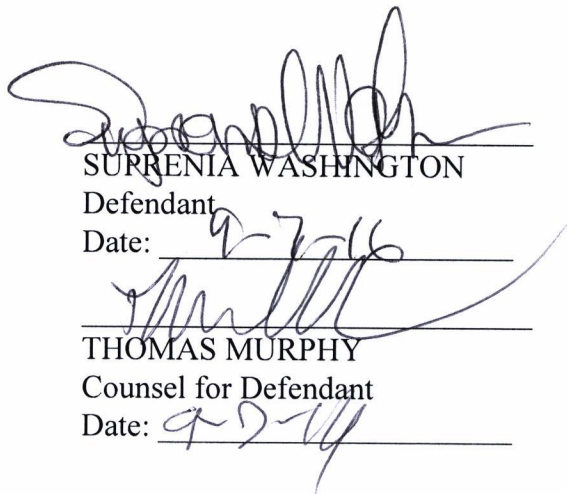 SUPRENIA WASHINGTON
Defendant
Date: 9-7-16
THOMAS MURPHY
Counsel for Defendant
Date: 9-7-16